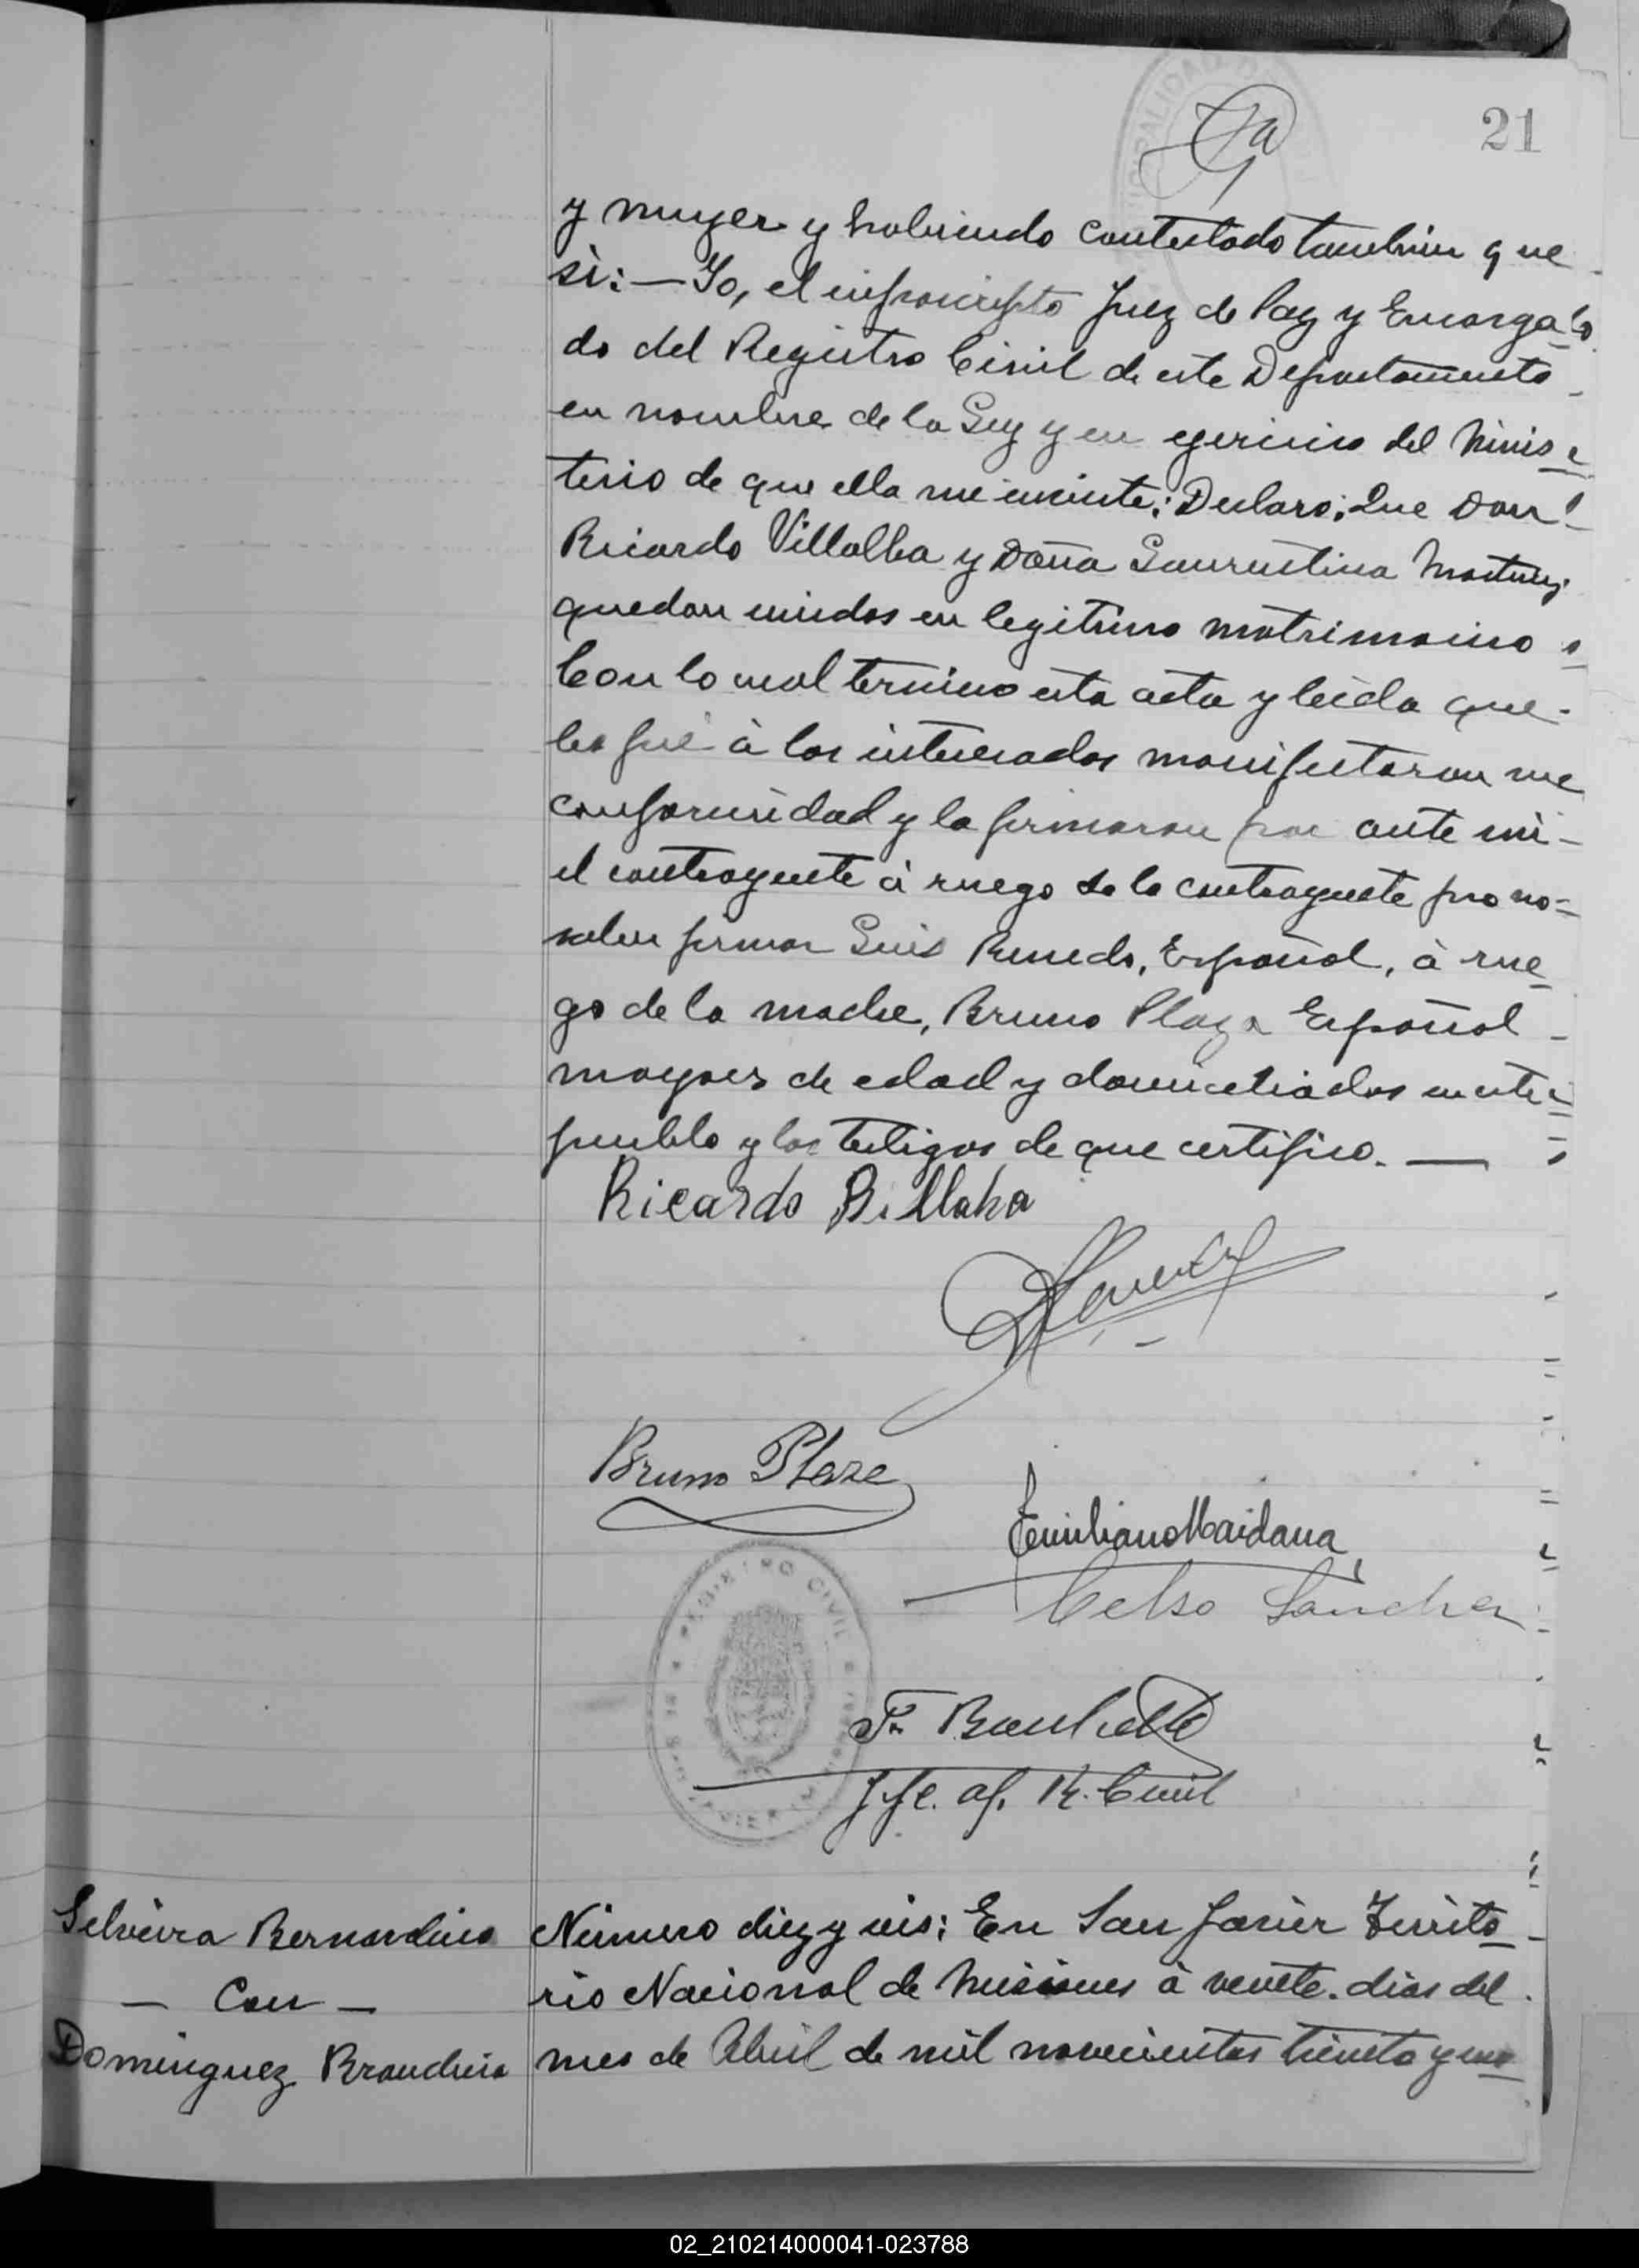 21
y muger y habiendo contestado tambien que
si:— Yo, el infrascripto Juez de Paz y Encarga
do del Registro Civil de este Departamento
en nombre de la Ley y en egercicio del Minis
terio de que ella me inviste: Declaro; Que Don
Ricardo Villalba y Doña Laurentina Martinez
quedan unidos en legitimo matrimonio
Con lo cual termino esta acta y leida que
les fué à los interesados manifestaron
conformidad y la firmaron por ante mi
el contrayente à ruego de la contrayente por no
saber firmar Luis Renedo, Español, à rue
go de la madre, Bruno Plaza Español
mayores de edad y domiciliados en este
pueblo y los testigos de que certifico. —
Ricardo Billaba
Bruno Plaza
Emiliano Maidana
Celso Sanchez
REGISTRO CIVIL
Jefe. of. R. Civil
Selveira Bernardino
— Con —
Dominguez Braudicia
Número diez y seis: En San Javier Territo
rio Nacional de Misiones à veinte dias del
mes de Abril de mil novecientos treinta y uno
02_210214000041-023788